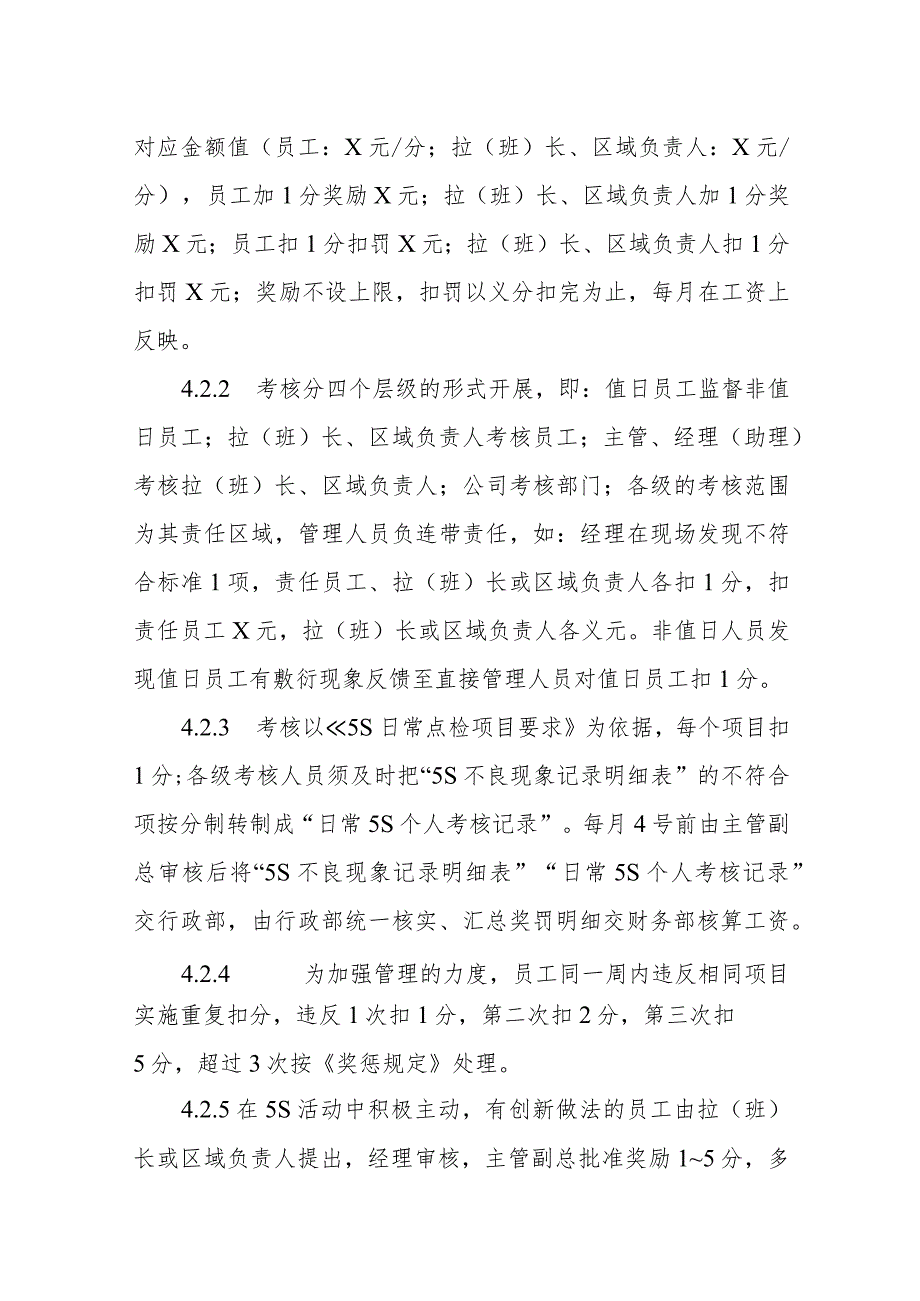 对应金额值（员工：X元/分；拉（班）长、区域负责人：X元/
分），员工加1分奖励X元；拉（班）长、区域负责人加1分奖
励X元；员工扣1分扣罚X元；拉（班）长、区域负责人扣1分
扣罚X元；奖励不设上限，扣罚以义分扣完为止，每月在工资上
反映。
4.2.2 考核分四个层级的形式开展，即：值日员工监督非值
日员工；拉（班）长、区域负责人考核员工；主管、经理（助理）
考核拉（班）长、区域负责人；公司考核部门；各级的考核范围
为其责任区域，管理人员负连带责任，如：经理在现场发现不符
合标准1项，责任员工、拉（班）长或区域负责人各扣1分，扣
责任员工X元，拉（班）长或区域负责人各义元。非值日人员发
现值日员工有敷衍现象反馈至直接管理人员对值日员工扣1分。
4.2.3 考核以≪5S日常点检项目要求》为依据，每个项目扣
1分;各级考核人员须及时把“5S不良现象记录明细表”的不符合
项按分制转制成“日常5S个人考核记录”。每月4号前由主管副
总审核后将“5S不良现象记录明细表”“日常5S个人考核记录”
交行政部，由行政部统一核实、汇总奖罚明细交财务部核算工资。
4.2.4 为加强管理的力度，员工同一周内违反相同项目
实施重复扣分，违反1次扣1分，第二次扣2分，第三次扣
5分，超过3次按《奖惩规定》处理。
4.2.5在5S活动中积极主动，有创新做法的员工由拉（班）
长或区域负责人提出，经理审核，主管副总批准奖励1~5分，多